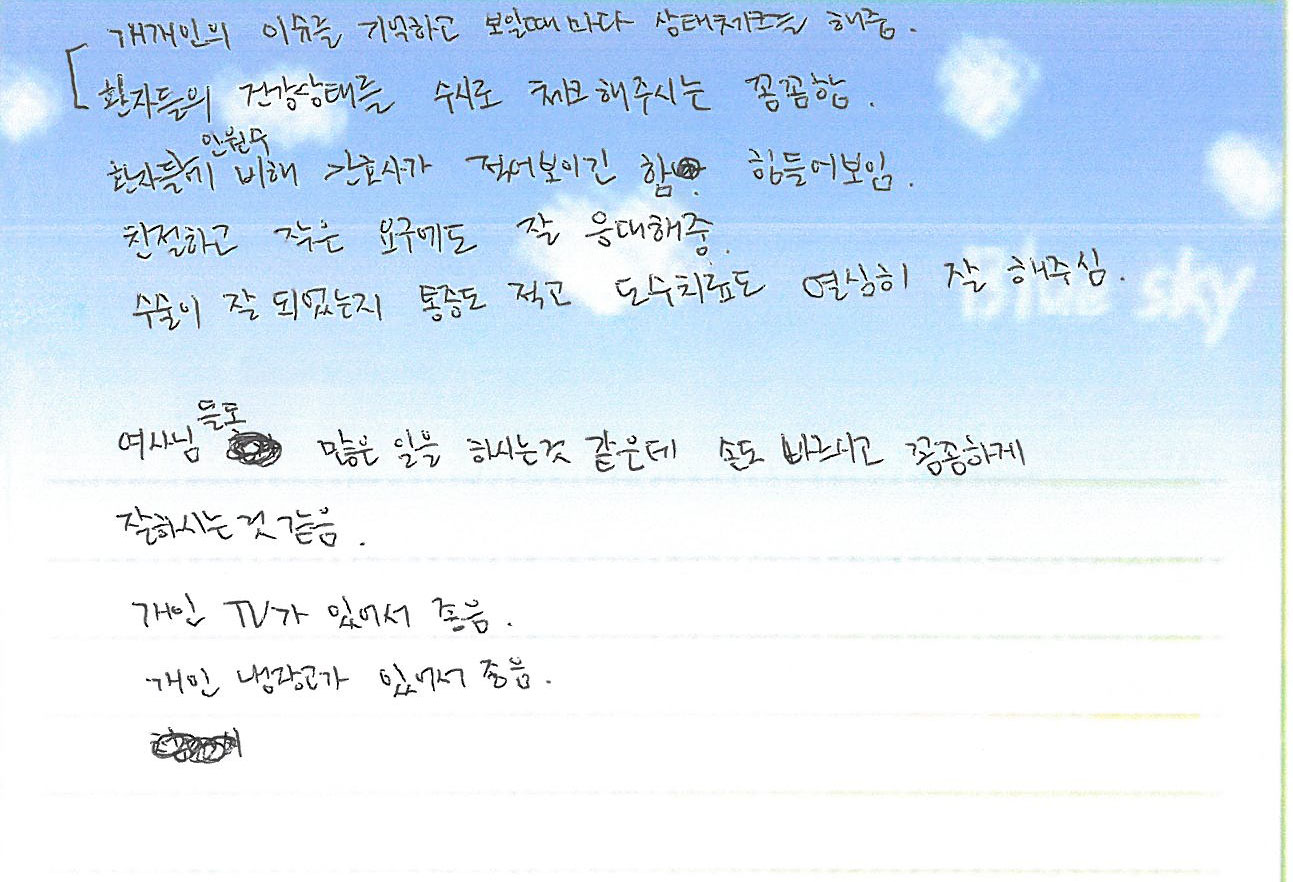 개개인의 이슈를 기억하고 보일때마다 상태체크를 해줌.
환자들의 건강상태를 수시로 체크해주시는 꼼꼼함.
환자들에 인원수 비해 간호사가 적어보이긴 함. 힘들어보임.
친절하고 작은 요구에도 잘 응대해줌.
수술이 잘 되었는지 통증도 적고 도수치료도 열심히 잘 해주심.
Blue sky
여사님들도 많은 일을 하시는것 같은데 손도 바르시고 꼼꼼하게
잘하시는것 같음.
개인 TV가 있어서 좋음.
개인 냉장고가 있어서 좋음.